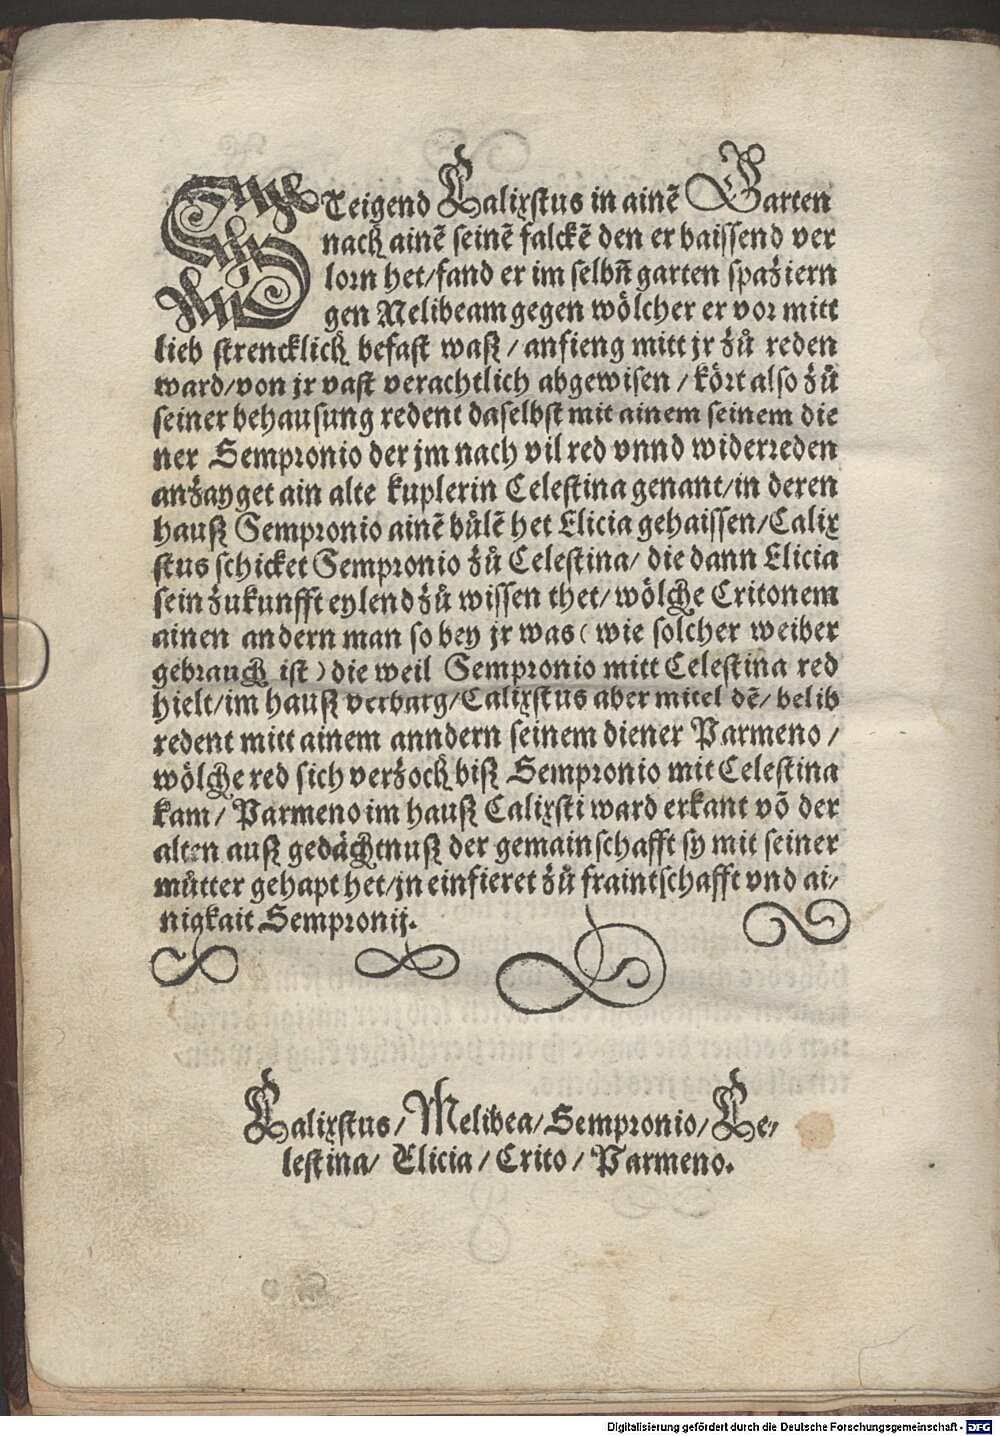 STeigend Calixstus in ainē Garten
nach ainē seinē falckē den er baissend ver
lorn het/fand er im selbñ garten spaziern
gen Melibeam gegen wölcher er vor mitt
lieb strencklich befast waß/anfieng mitt jr zů reden
ward/von jr vast verachtlich abgewisen/kört also zů
seiner behausung redent daselbst mit ainem seinem die
ner Sempronio der jm nach vil red vnnd widerreden
anzayget ain alte kuplerin Celestina genant/in deren
hauß Sempronio ainē bůlē het Elicia gehaissen/Calix
stus schicket Sempronio zů Celestina/die dann Elicia
sein zukunfft eylend zů wissen thet/wölche Critonem
ainen andern man so bey jr was (wie solcher weiber
gebrauch ist) die weil Sempronio mitt Celestina red
hielt/im hauß verbarg/Calixstus aber mitel dē/belib
redent mitt ainem anndern seinem diener Parmeno/
wölche red sich verzoch biß Sempronio mit Celestina
kam/Parmeno im hauß Calixsti ward erkant vō der
alten auß gedächtnuß der gemainschafft sy mit seiner
můtter gehapt het/jn einfieret zů fraintschafft vnd ai/
nigkait Sempronij.
Calixstus/Melibea/Sempronio/Ce/
lestina/Elicia/Crito/Parmeno.
Digitalisierung gefördert durch die Deutsche Forschungsgemeinschaft - DFG